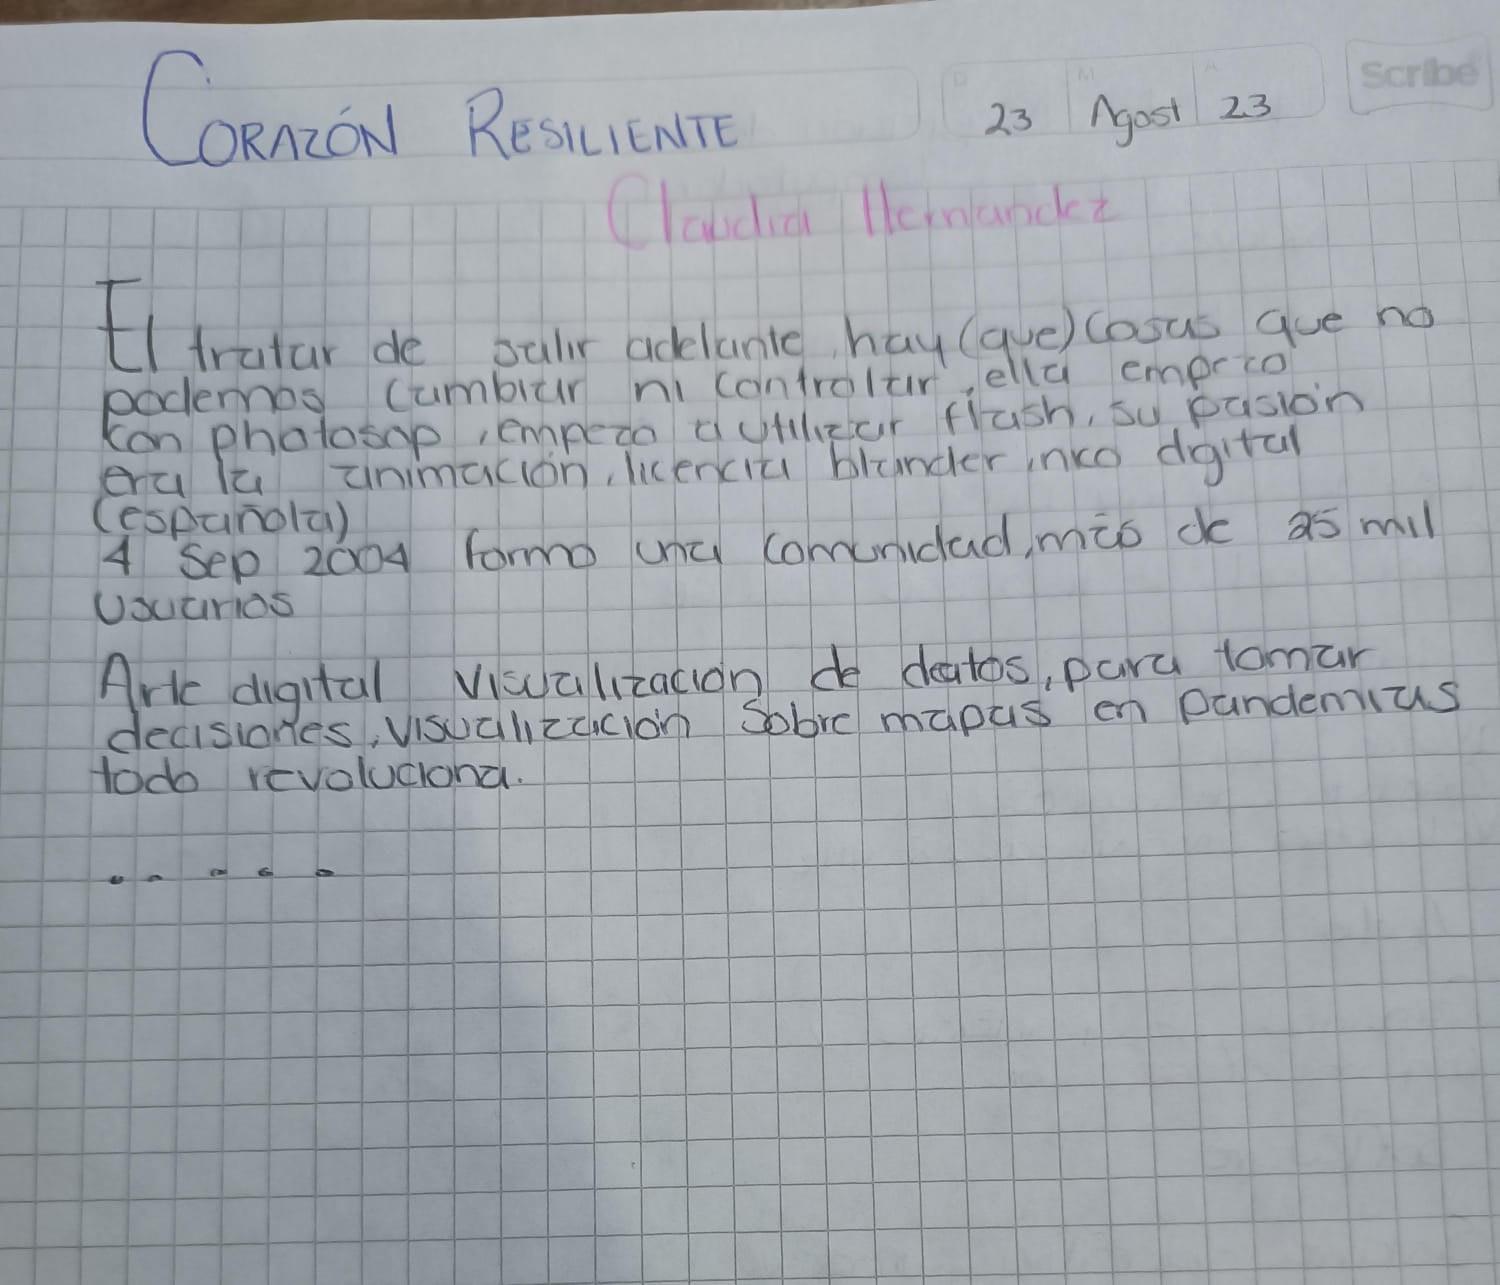 Scribe
D M A
CORAZÓN RESILIENTE 23 Agost 23
Claudia Hernandez
El tratar de salir adelante, hay (que) cosas que no
podemos cambiar ni controlar, ella empezo
con photosop, empezo a utilizar flash, su pasión
era la animación, licencia blander, inko digital
(española)
4 Sep 2004 formo una comunidad, más de 25 mil
usuarios
Arte digital visualización de datos, para tomar
decisiones, visualización sobre mapas en pandemias
todo revoluciona.
. . . . .